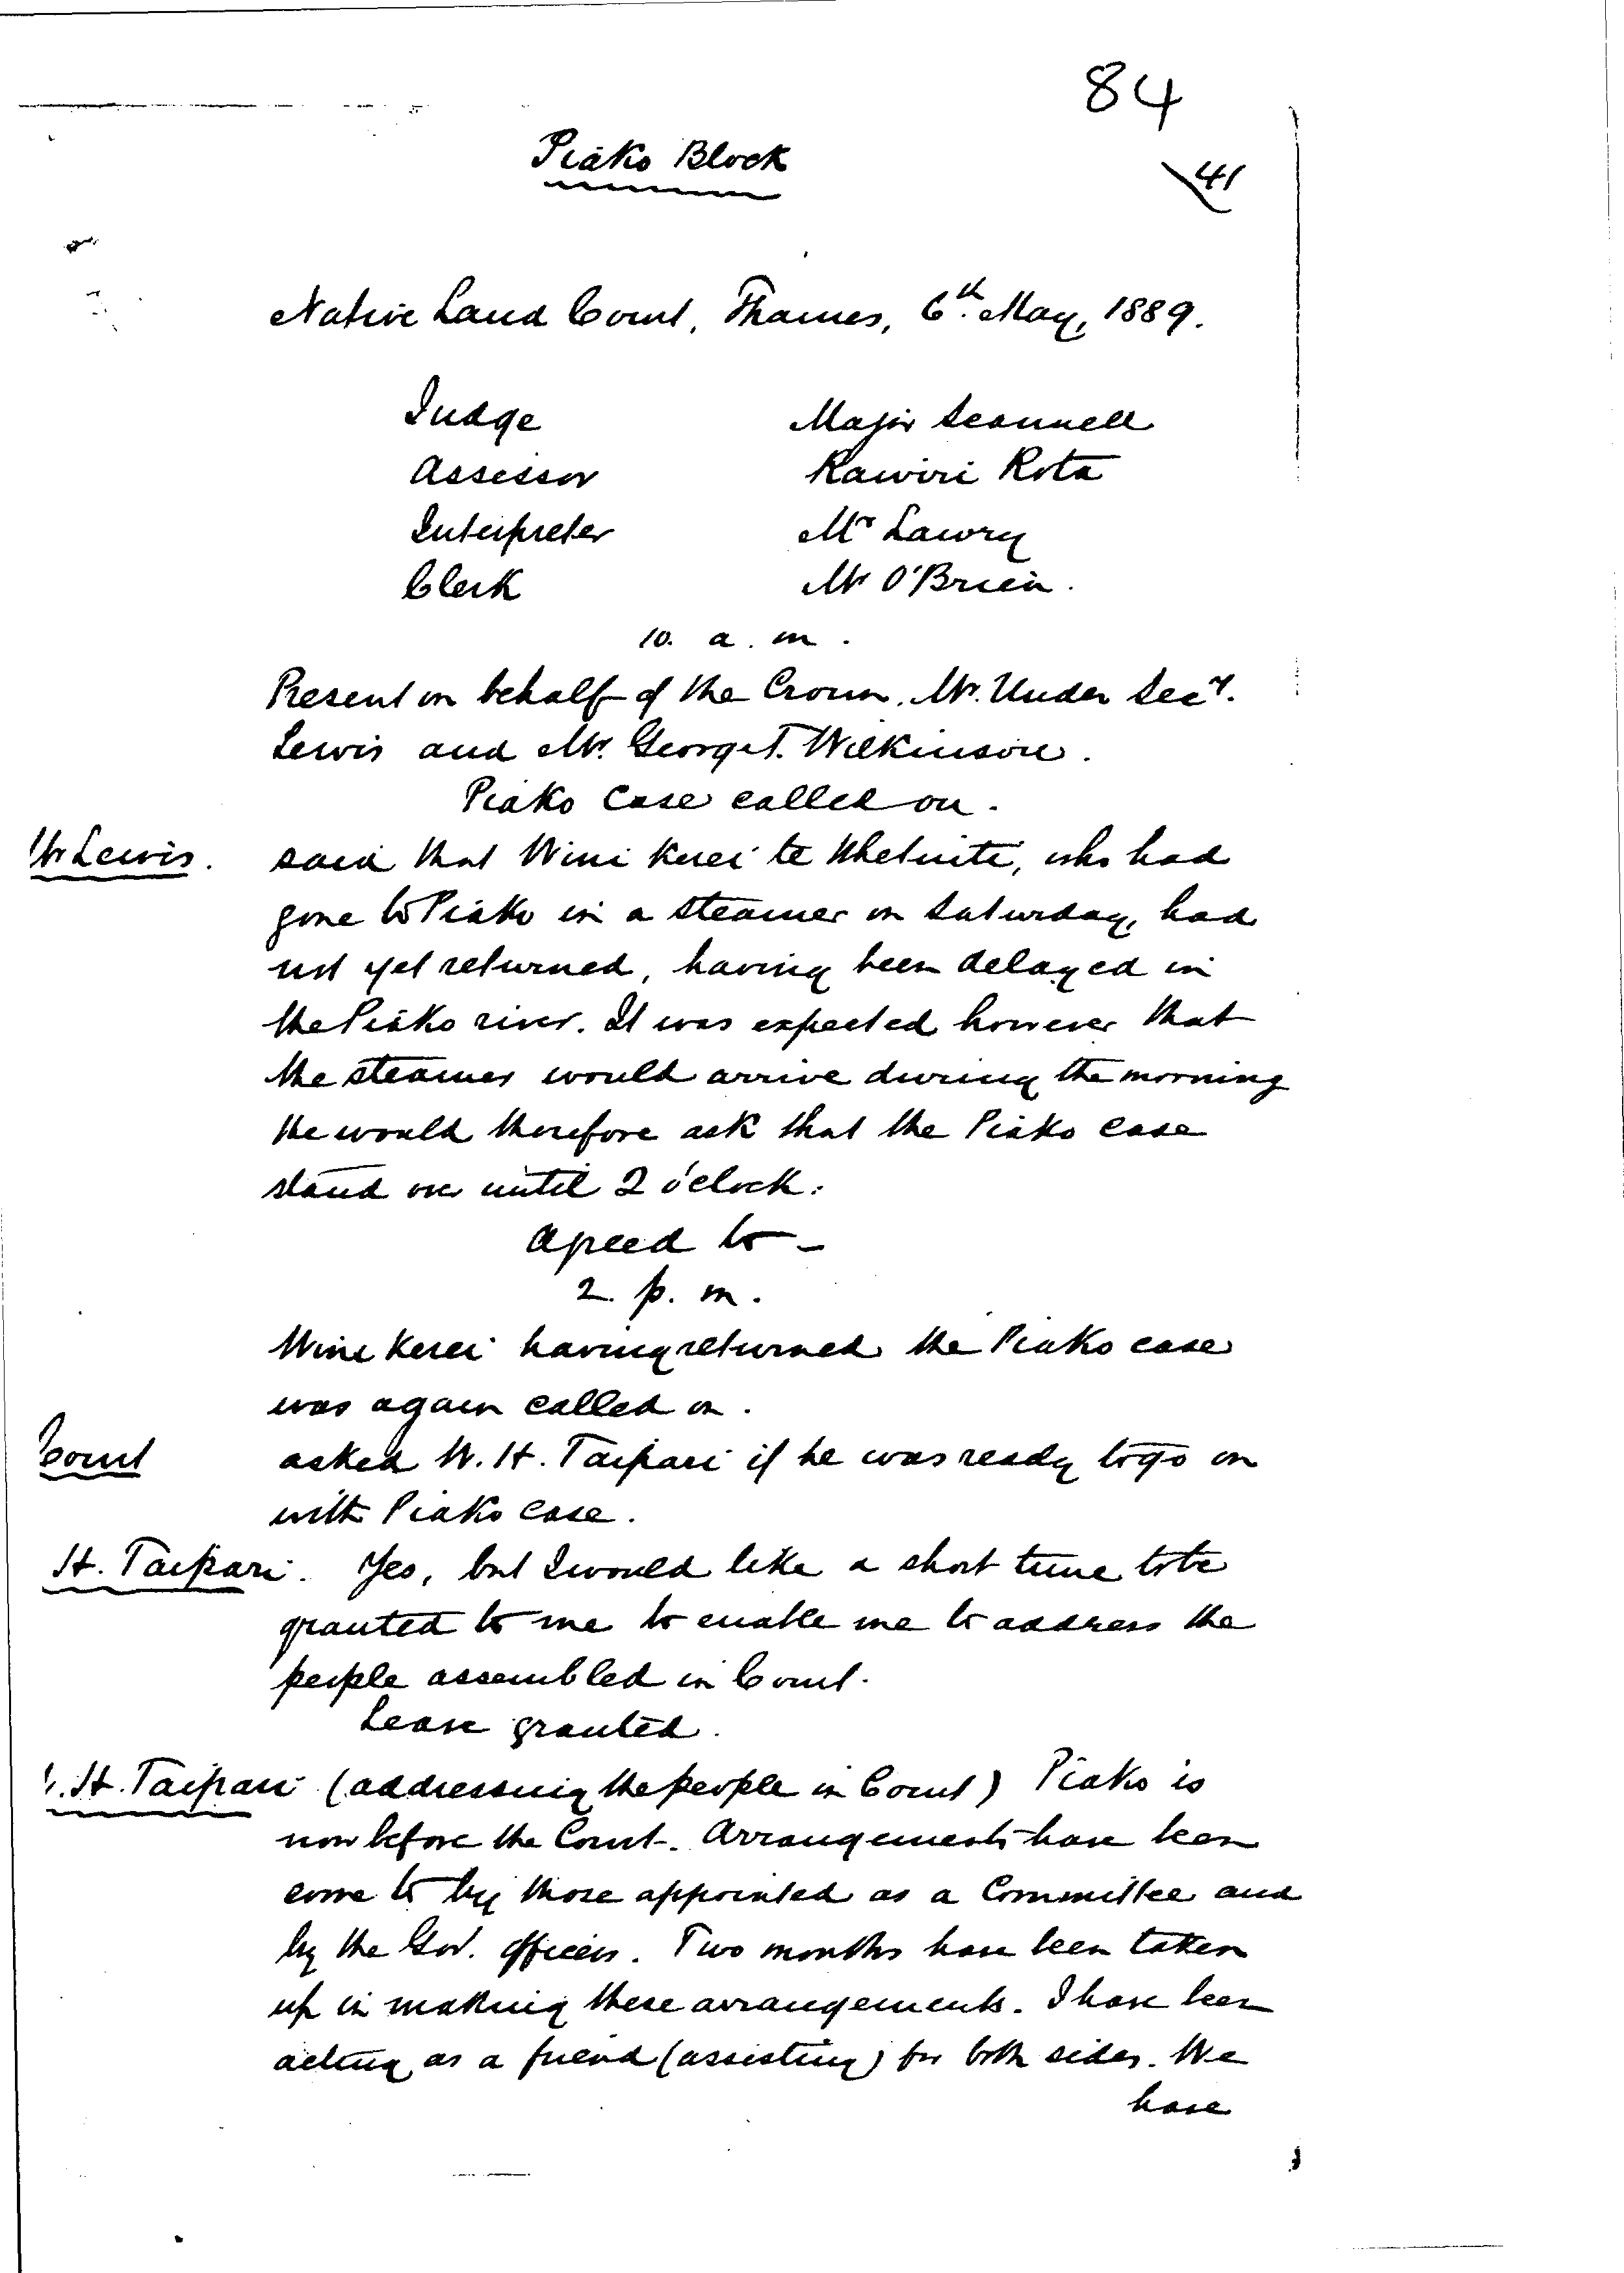 84
Piako Block
41
Native Land Court, Thames, 6th May, 1889.
Judge Major Scannell
Assessor Rawiri Rota
Interpreter Mr Lawry
Clerk Mr O'Brien.
10. a. m.
Present on behalf of the Crown, Mr. Under Secy.
Lewis and Mr. George T. Wilkinson.
Piako Case called on.
Mr Lewis. said that Wini Kerei te Whetuiti, who had
gone to Piako in a steamer on Saturday, had
not yet returned, having been delayed in
the Piako river. It was expected however that
the steamer would arrive during the morning
He would therefore ask that the Piako case
stand over until 2 o'clock.
Agreed to -
2. p. m.
Wini Kerei having returned the Piako case
was again called on.
Court asked W. H. Taipari if he was ready to go on
with Piako Case.
H. Taipari. Yes, but I would like a short time to be
granted to me to enable me to address the
people assembled in Court.
Leave granted.
H. Taipari (addressing the people in Court) Piako is
now before the Court. Arrangements have been
come to by those appointed as a Committee and
by the Gov. officers. Two months have been taken
up in making these arrangements. I have been
acting as a friend (assisting) for both sides. We
have